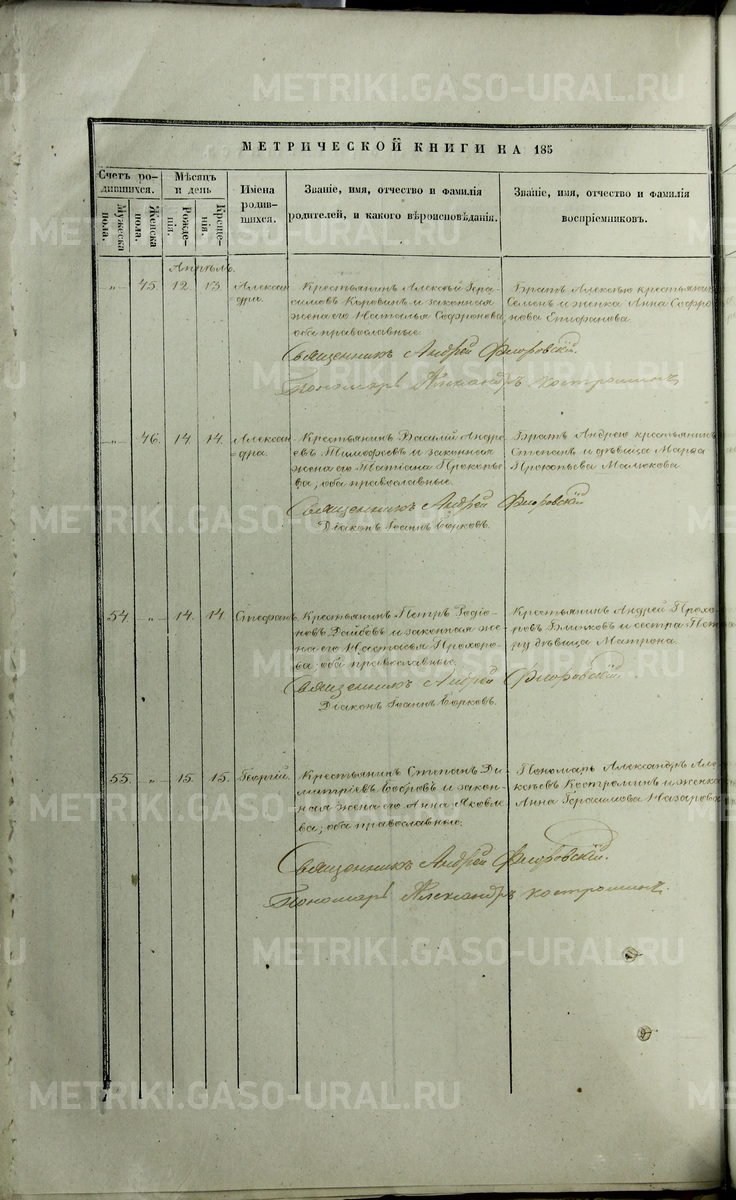 METRIKI.GASO-URAL.RU
МЕТРИЧЕСКОЙ КНИГИ НА 185
Счетъ ро-
дившихся.
Мужеска
пола.
Женска
пола.
Мѣсяцъ
и день
Рожде-
нія.
Креще-
нія.
Имена
родив-
шихся.
Званіе, имя, отчество и фамилія
родителей, и какого вѣроисповѣданія.
Званіе, имя, отчество и фамилія
воспріемниковъ.
Апрѣль.
„ 45. 12. 13. Алексан
дра.
Крестьянинъ Алексѣй Гера
симовъ и законная
жена его Наталья Софронова,
оба православные
Братъ Алексѣю крестьянинъ
Семенъ и женка Анна Софро
нова Епифанова
Священникъ Андрей Флоровскій.
Пономарь Александръ Костроминъ
„ 46. 14. 14. Алексан
дра.
Крестьянинъ Василій Андре
евъ Тимофеевъ и законная
жена его Татіана Прокопье
ва; оба православные.
Братъ Андрею крестьянинъ
Степанъ и дѣвица Марѳа
Прокопьева
Священникъ Андрей Флоровскій
Діаконъ Іоаннъ
54. „ 14. 14. Стефанъ.
Крестьянинъ Петръ Родіо
новъ и законная же
на его Настасья Прохоро
ва; оба православные.
Крестьянинъ Андрей Прохо
ровъ и сестра Пет
ру дѣвица Матрона.
Священникъ Андрей Флоровскій
Діаконъ Іоаннъ
55. „ 15. 15. Георгій.
Крестьянинъ Степанъ Ди
митріевъ Бобровъ и закон
ная жена его Анна Яковле
ва; оба православные.
Пономарь Александръ Але
ксѣевъ Костроминъ и женка
Анна Герасимова
Священникъ Андрей Флоровскій.
Пономарь Александръ Костроминъ.